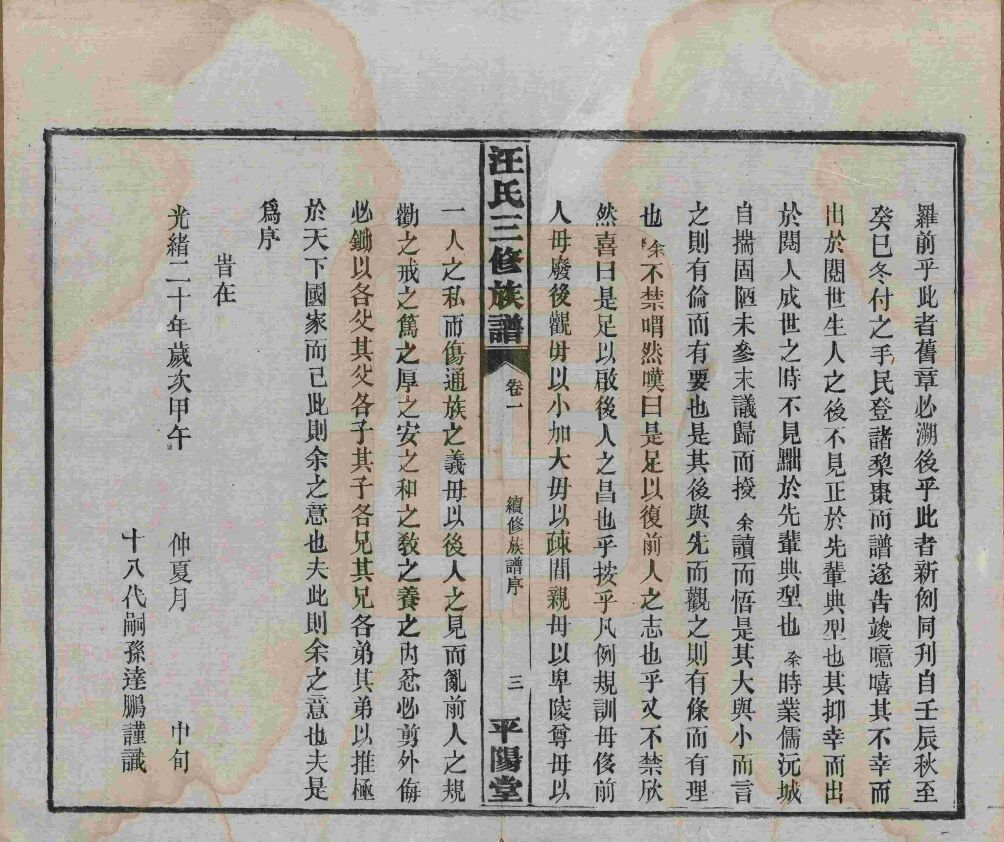 羅前乎此者舊章必溯後乎此者新例同刊自壬辰秋至
癸巳冬付之手民登諸棃棗而譜遂告竣噫嘻其不幸而
出於閱世生人之後不見正於先輩典型也其抑幸而出
於閱人成世之時不見黜於先輩典型也余時業儒沅城
自揣固陋未參末議歸而授余讀而悟是其大與小而言
之則有倫而有要也是其後與先而觀之則有條而有理
也余不禁喟然嘆曰是足以復前人之志也乎又不禁欣
然喜曰是足以啟後人之昌也乎按乎凡例規訓毋侈前
人毋廢後觀毋以小加大毋以疎間親毋以卑陵尊毋以
汪氏三修族譜 卷一 續修族譜序 三 平陽堂
一人之私而傷通族之義毋以後人之見而亂前人之規
勸之戒之篤之厚之安之和之敎之養之內忿必剪外侮
必鋤以各父其父各子其子各兄其兄各弟其弟以推極
於天下國家而已此則余之意也夫此則余之意也夫是
爲序
旹在
光緒二十年歲次甲午 仲夏月 中旬
十八代嗣孫達鵬謹識